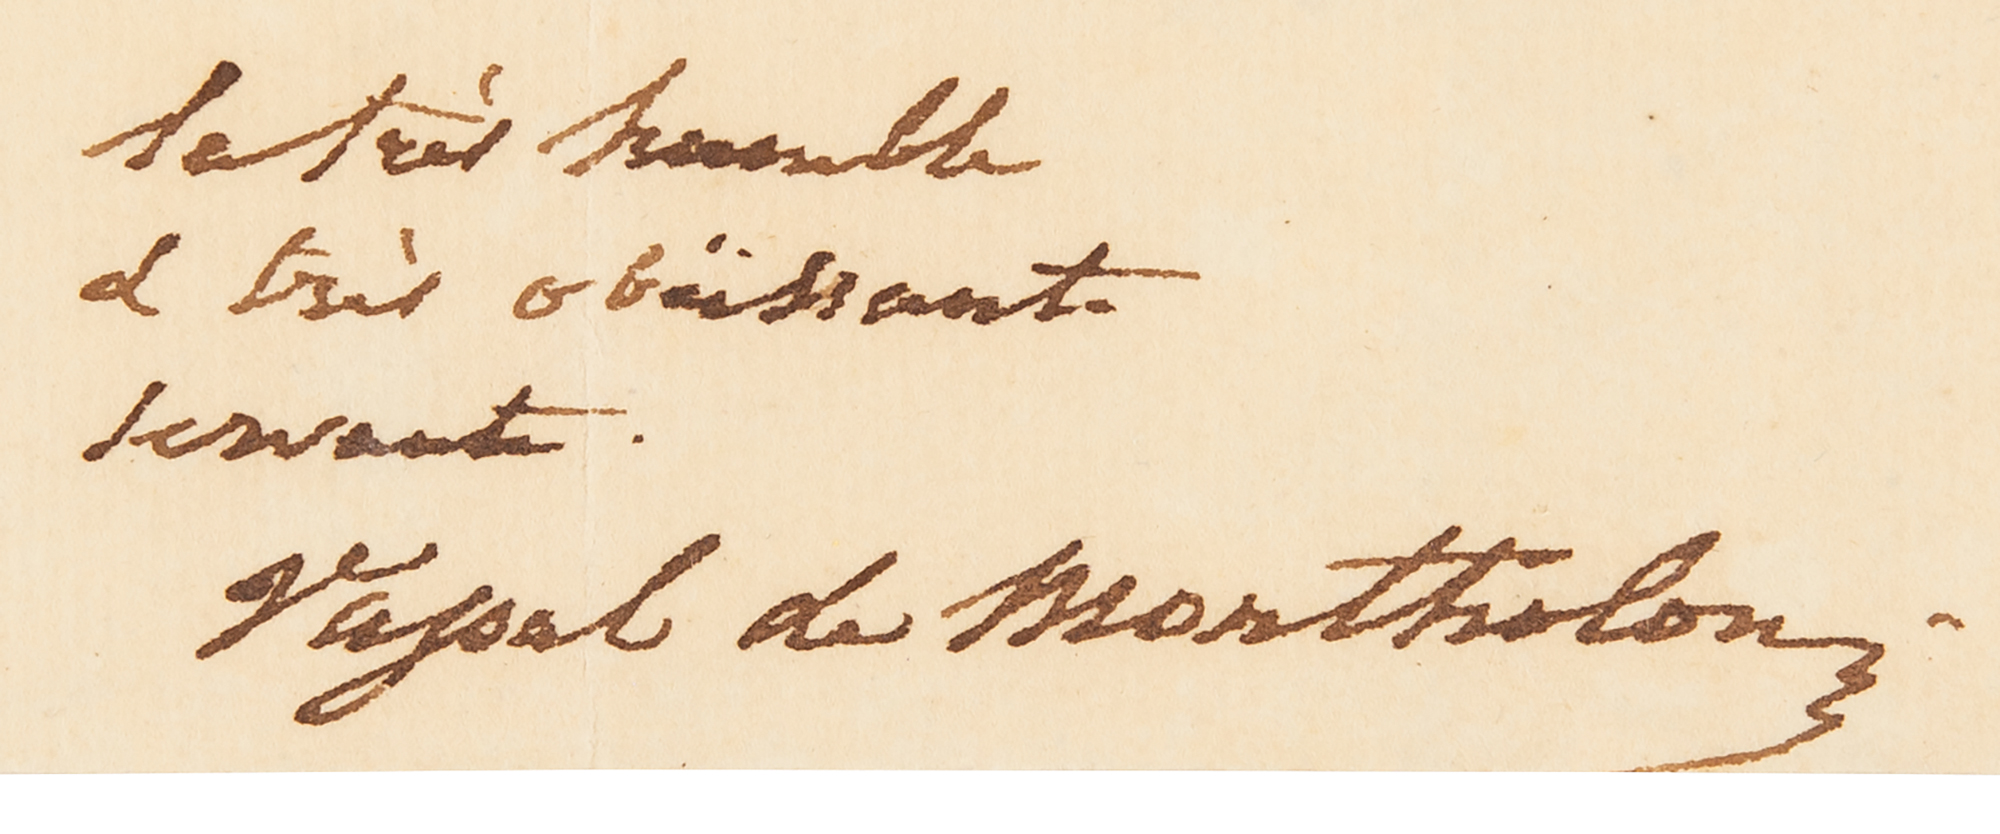 la très humble
et très obeïssante
servante.
Vassal de Montholon